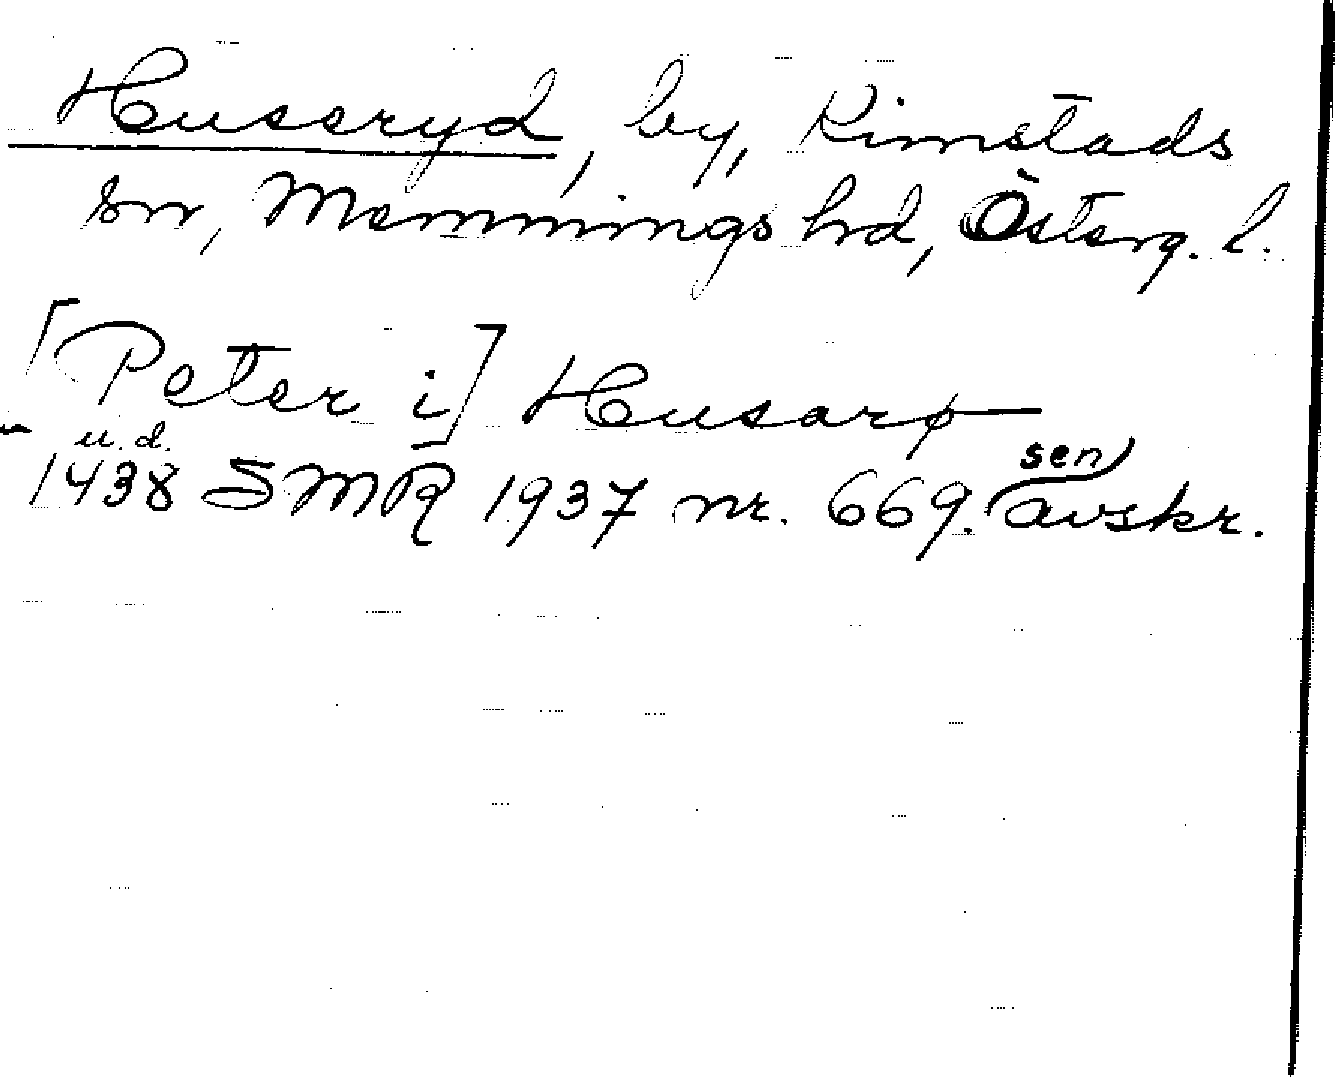 Huseryd, by, Kimstads
sn, Memmings hd, Österg. l.
[Peter i] Husarp
u.d.
1438 SMR 1937 nr. 669. sen avskr.